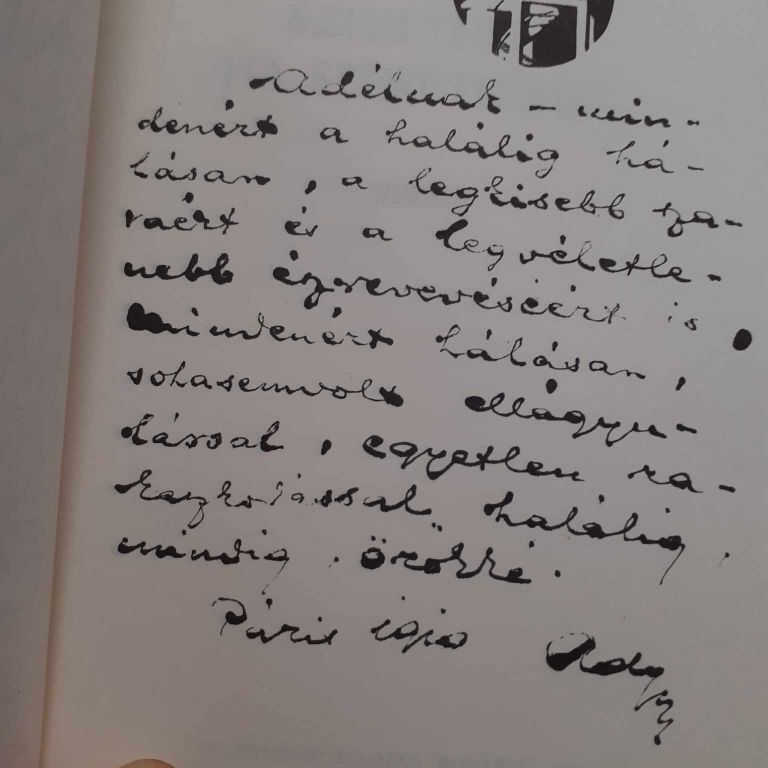 Adélnak – min-
denért a halálig há-
lásan, a legkisebb sza-
váért és a legvéletle-
nebb észrevevéséért is
mindenért hálásan,
sohasemvolt ellágyu-
lással, egyetlen ra-
gaszkodással, halálig,
mindig, örökké.
Páris 1910 Ady